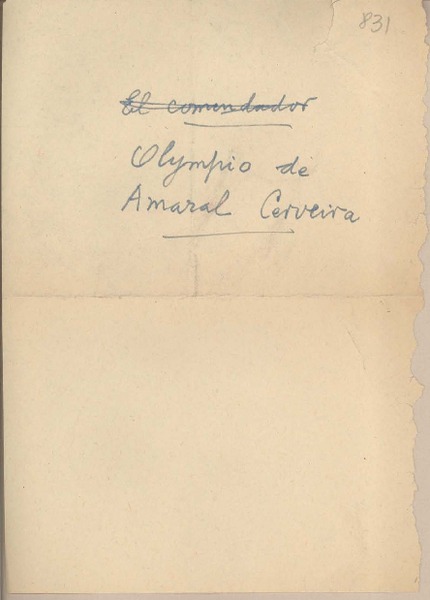 831
El comendador
Olympio de
Amaral Cerveira